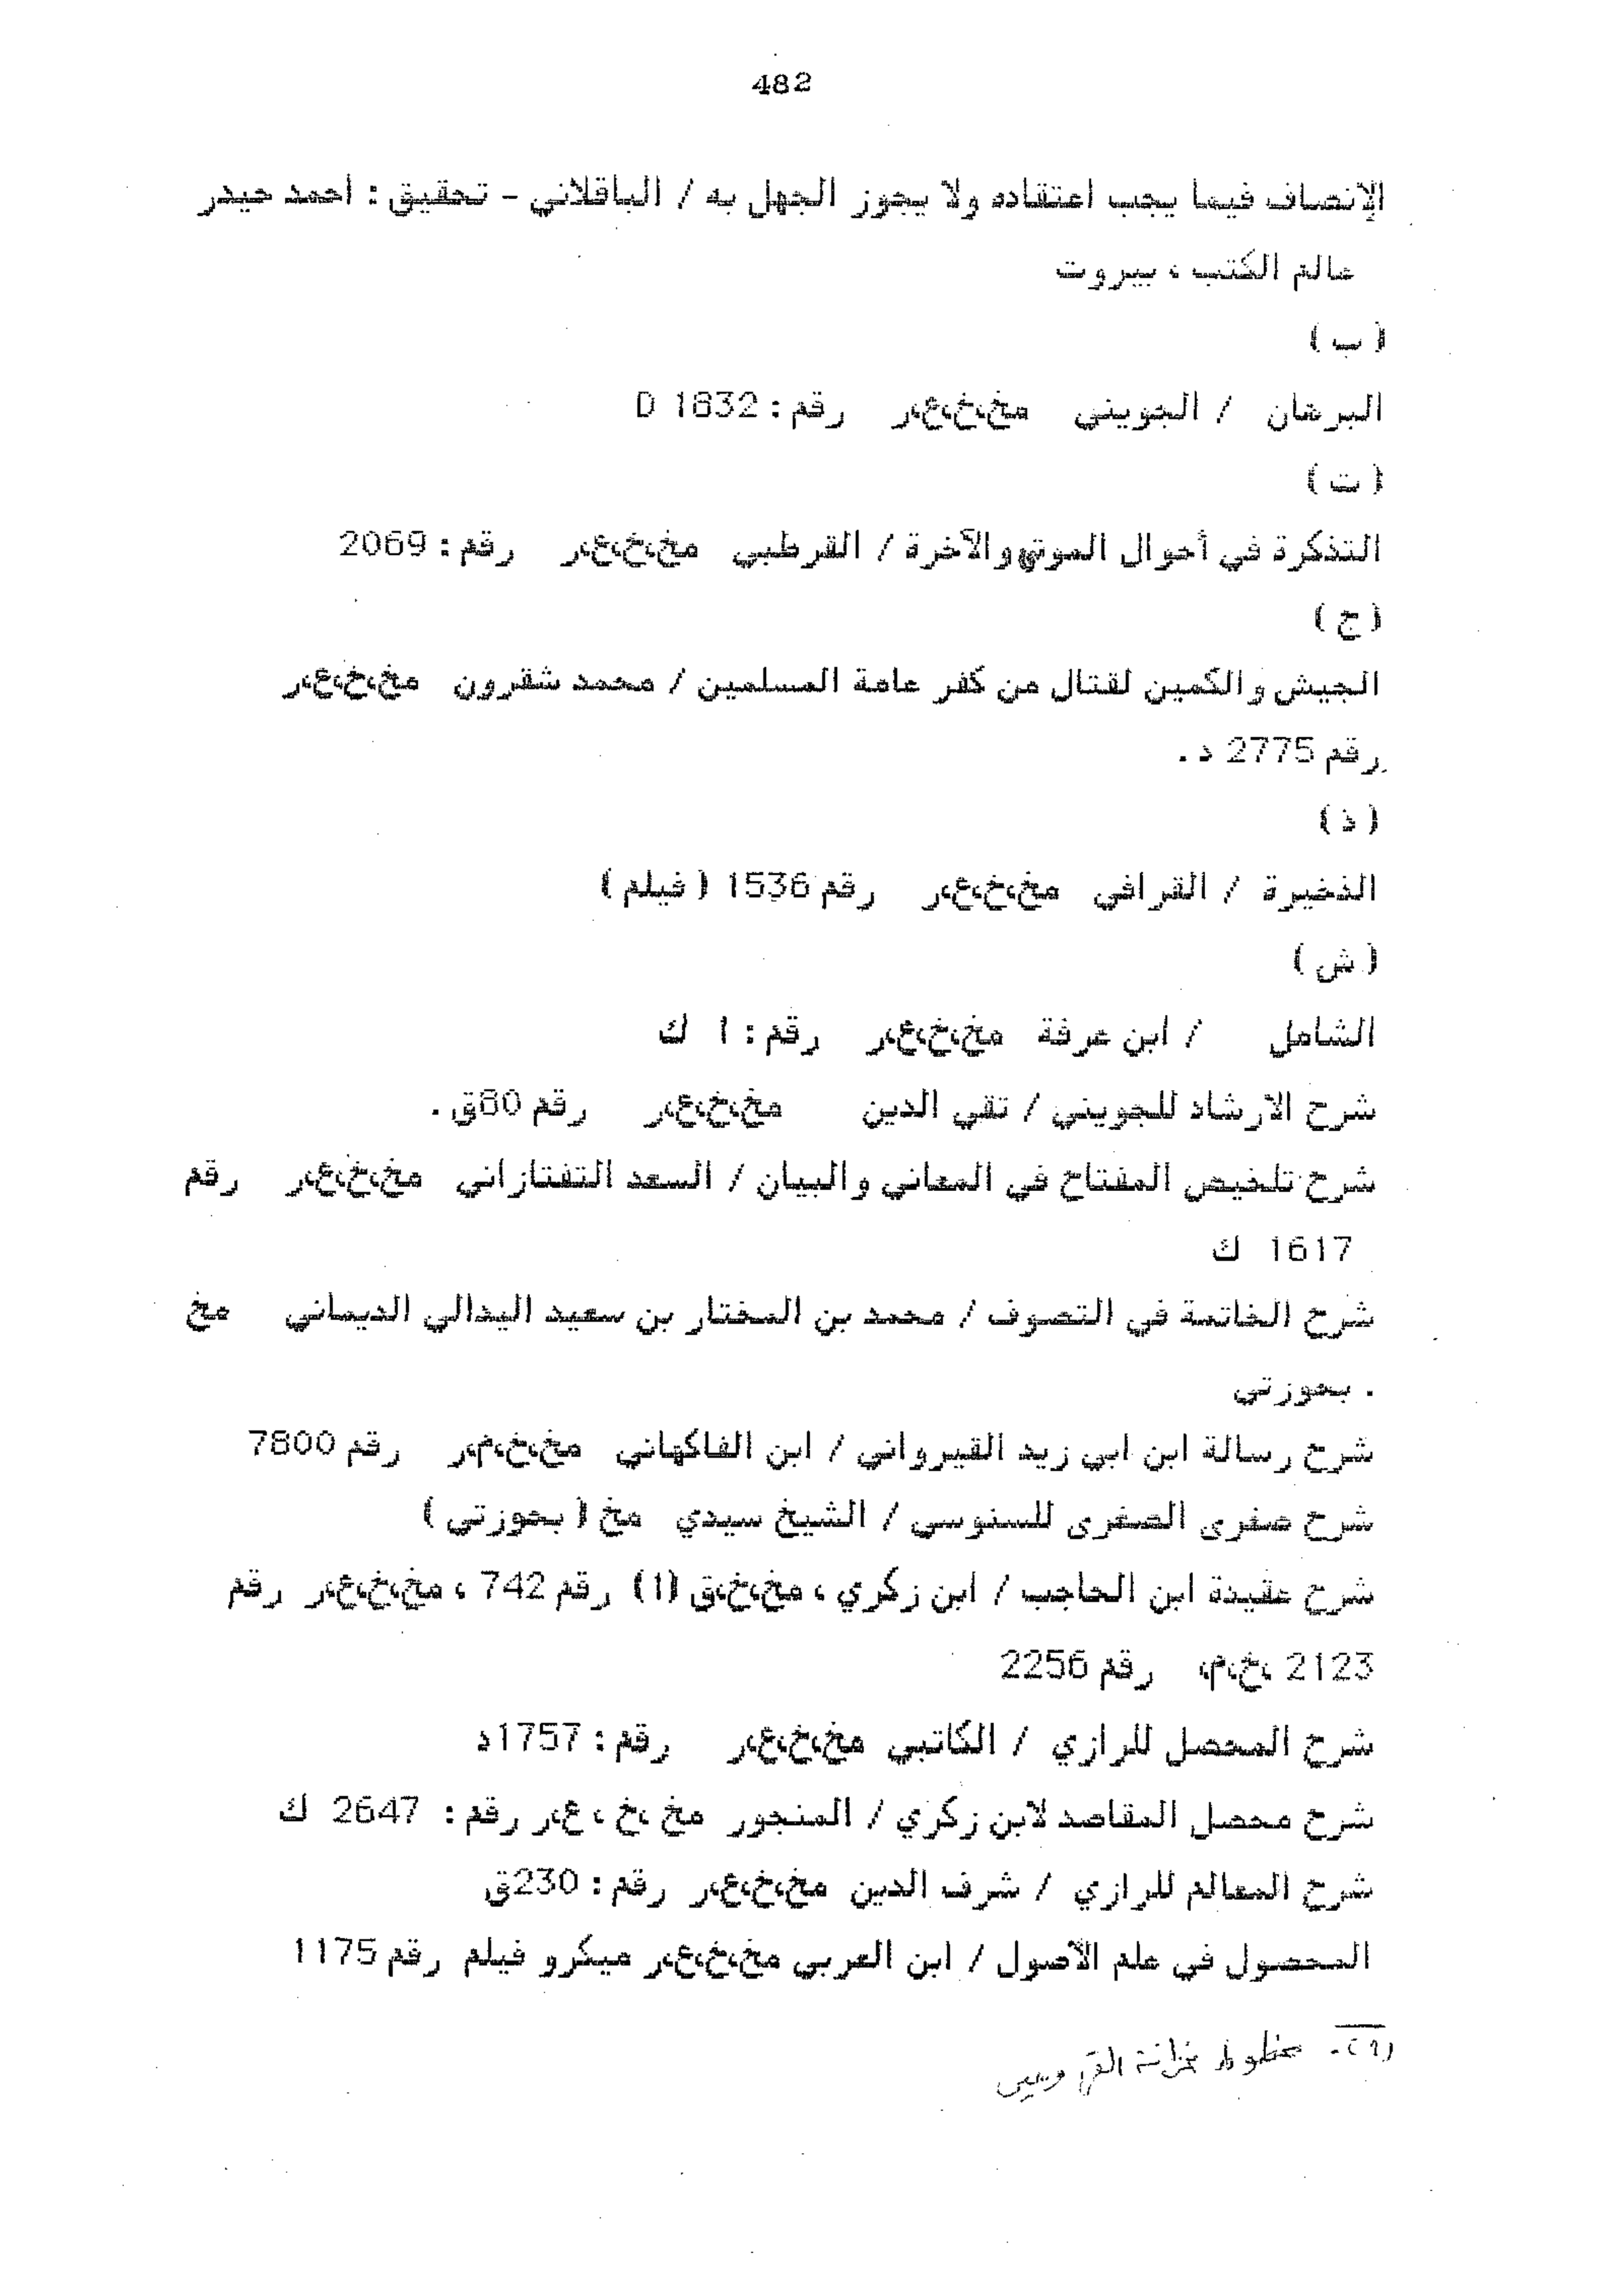 482
الإنصاف فيما يجب اعتقاده ولا يجوز الجهل به / الباقلاني - تحقيق : احمد حيدر
عالم الكتب ، بيروت
( ب )
البرهان / الجويني مخ،خ،ع،ر رقم : 1632 D
( ت )
التذكرة في أحوال الموتى والآخرة / القرطبي مخ،خ،ع،ر رقم : 2069
( ج )
الجيش والكمين لقتال من كفر عامة المسلمين / محمد شقرون مخ،خ،ع،ر
رقم 2775 د .
( ذ )
الذخيرة / القرافي مخ،خ،ع،ر رقم 1536 ( فيلم )
( ش )
الشامل / ابن عرفة مخ،خ،ع،ر رقم : 1 ك
شرح الارشاد للجويني / تقي الدين مخ،خ،ع،ر رقم 80ق .
شرح تلخيص المفتاح في المعاني والبيان / السعد التفتازاني مخ،خ،ع،ر رقم
1617 ك
شرح الخاتمة في التصوف / محمد بن المختار بن سعيد اليدالي الديماني مخ
. بحوزتي
شرح رسالة ابن ابي زيد القيرواني / ابن الفاكهاني مخ،خ،م،ر رقم 7800
شرح صغرى الصغرى للسنوسي / الشيخ سيدي مخ ( بحوزتي )
شرح عقيدة ابن الحاجب / ابن زكري ، مخ،خ،ق (1) رقم 742 ، مخ،خ،ع،ر رقم
2123 ،خ،م، رقم 2256
شرح المحصل للرازي / الكاتبي مخ،خ،ع،ر رقم : 1757د
شرح محصل المقاصد لابن زكري / المنجور مخ ،خ ، ع،ر رقم : 2647 ك
شرح المعالم للرازي / شرف الدين مخ،خ،ع،ر رقم : 230ق
المحصول في علم الأصول / ابن العربي مخ،خ،ع،ر ميكرو فيلم رقم 1175
(1) - مخطوط بخزانة القرويين